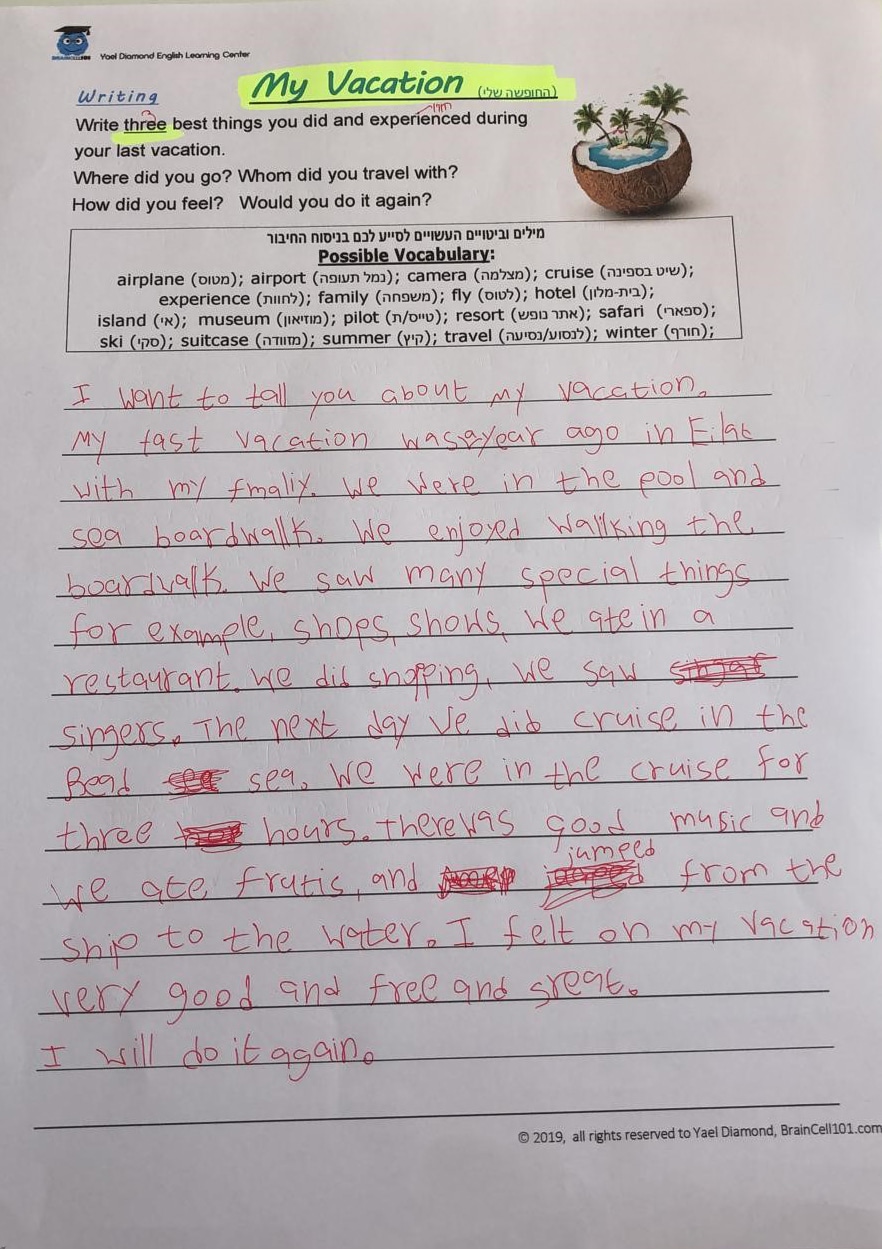 BRAINCELL101 Yael Diamond English Learning Center
My Vacation (החופשה שלי)
Writing
3 חווי
Write three best things you did and experienced during
your last vacation.
Where did you go? Whom did you travel with?
How did you feel? Would you do it again?
מילים וביטויים העשויים לסייע לכם בניסוח החיבור
Possible Vocabulary:
airplane (מטוס); airport (נמל תעופה); camera (מצלמה); cruise (שיט בספינה);
experience (לחוות); family (משפחה); fly (לטוס); hotel (בית-מלון);
island (אי); museum (מוזיאון); pilot (טייס/ת); resort (אתר נופש); safari (ספארי);
ski (סקי); suitcase (מזוודה); summer (קיץ); travel (לנסוע/נסיעה); winter (חורף);
I want to tall you about my vacation.
My fast vacation was a year ago in Eilat
with my fmaliy. We were in the pool and
sea boardwallk. We enjoyed wallking the
boardwalk. We saw many special things
for example, shops, shows, We ate in a
restaurant. We did shopping, We saw
singers. The next day We did cruise in the
Read sea. We were in the cruise for
three hours. There was good music and
We ate frutis, and jumped from the
ship to the water. I felt on my vacation
very good and free and great.
I will do it again.
© 2019, all rights reserved to Yael Diamond, BrainCell101.com